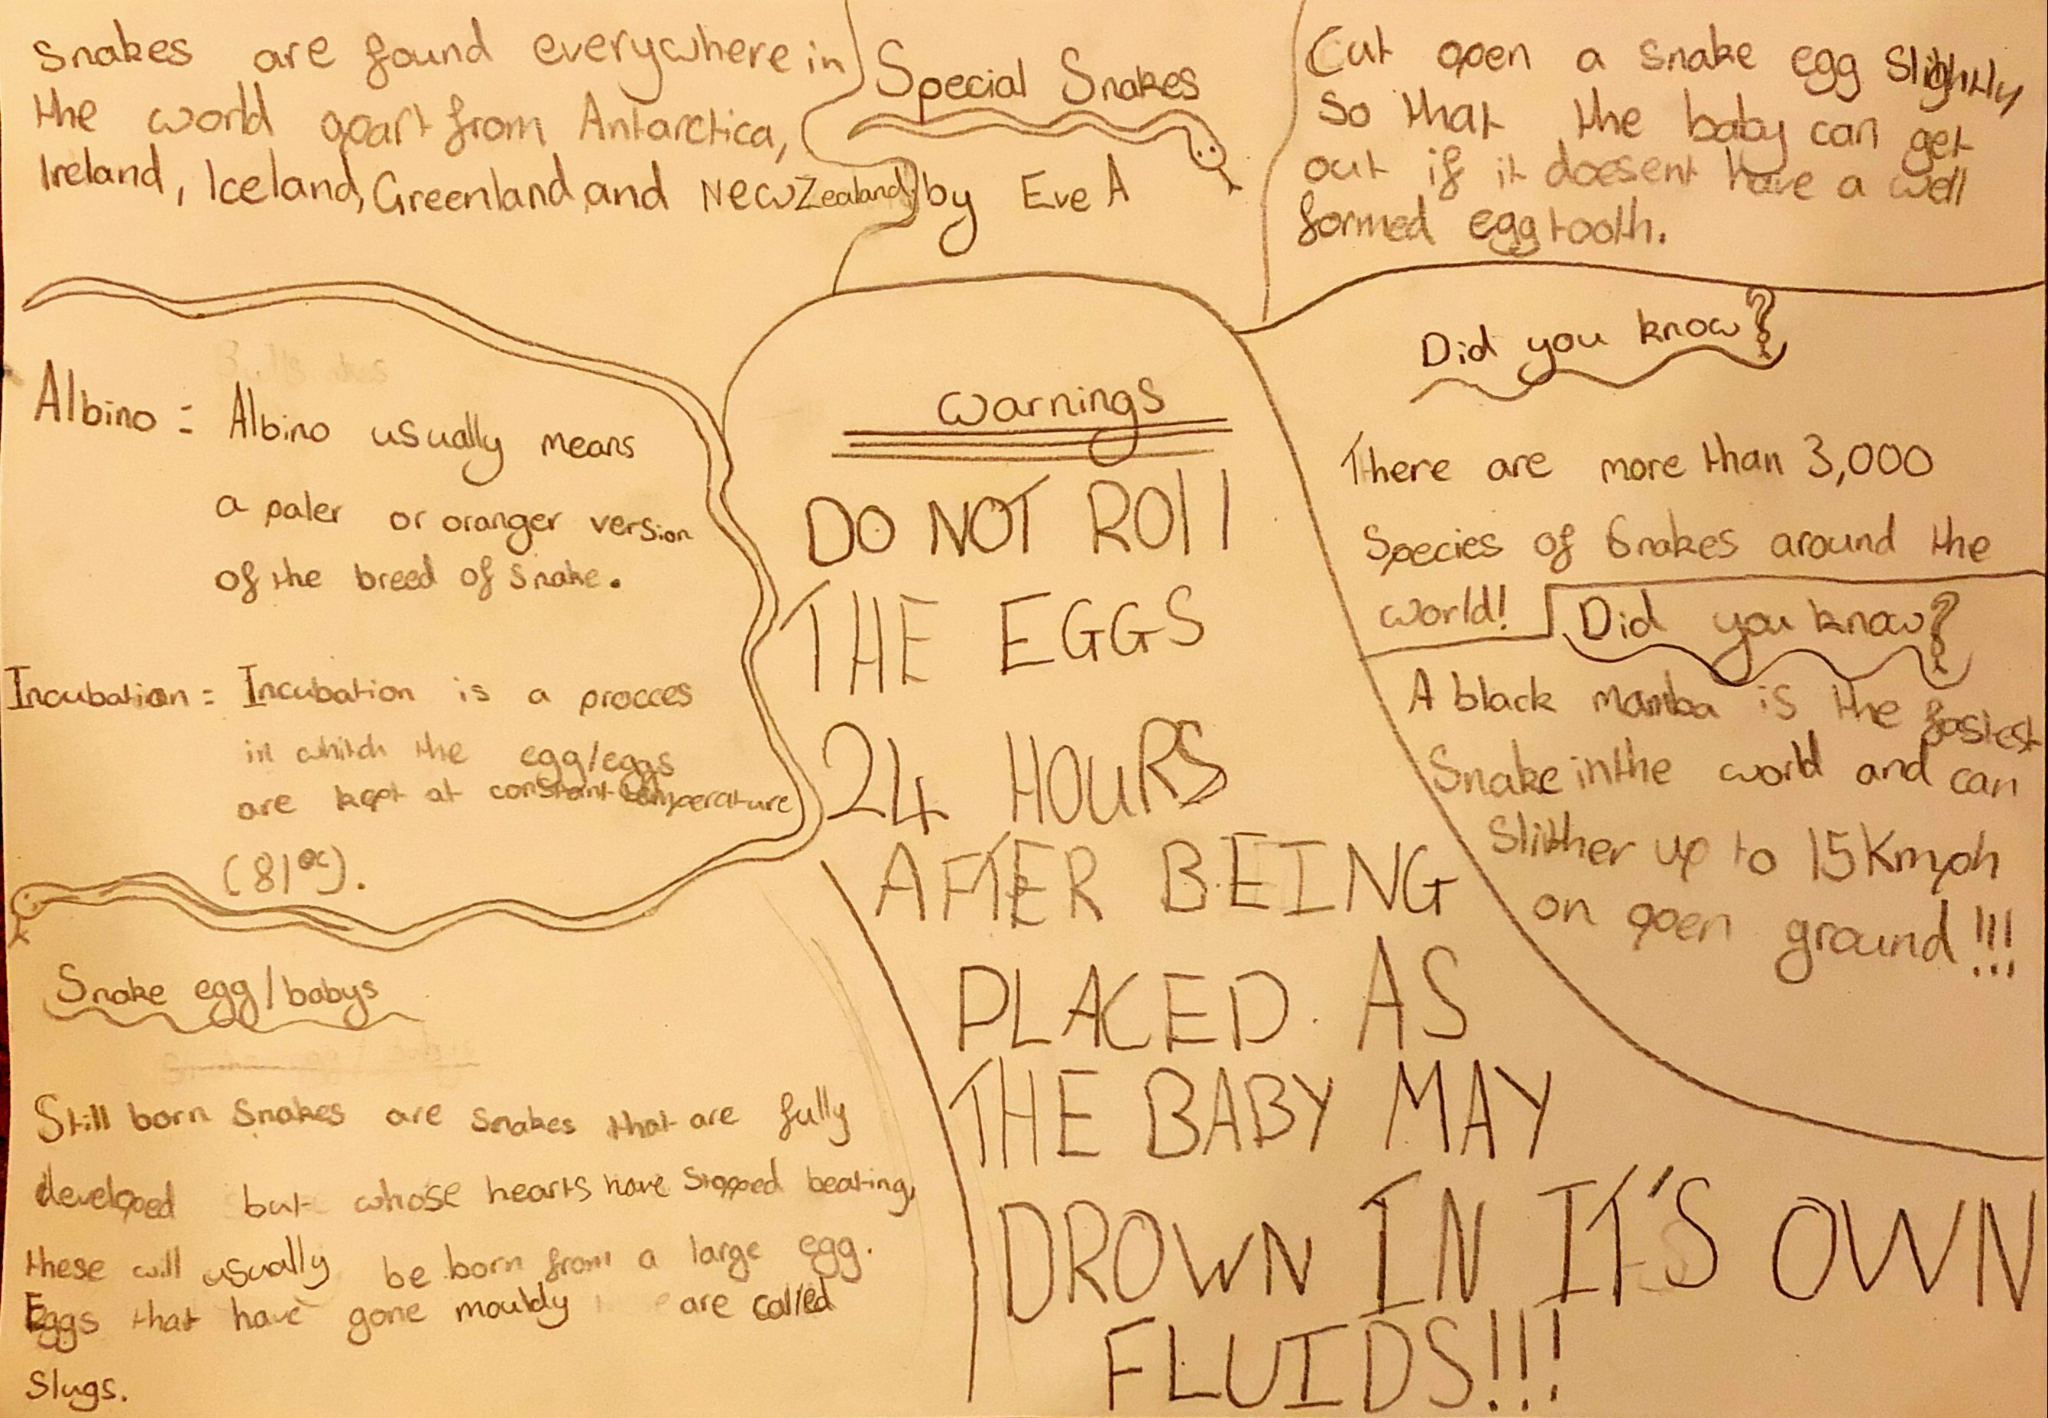 Snakes are found everywhere in
the world apart from Antarctica,
Ireland, Iceland, Greenland and New Zealand
Special Snakes
by Eve A
Cut open a snake egg slightly
so that the baby can get
out if it doesent have a well
formed egg tooth.
Albino = Albino usually means
a paler or oranger version
of the breed of snake.
Incubation = Incubation is a procces
in whitch the egg/eggs
are kept at constant temperature
(81°c).
Warnings
DO NOT ROll
THE EGGS
24 HOURS
AFTER BEING
PLACED AS
THE BABY MAY
DROWN IN IT'S OWN
FLUIDS!!!
Did you know?
There are more than 3,000
Species of Snakes around the
world!
Did you know?
A black mamba is the fastest
Snake in the world and can
Slither up to 15Kmph
on open ground!!!
Snake egg/babys
Still born snakes are snakes that are fully
developed but whose hearts have stopped beating,
these will usually be born from a large egg.
Eggs that have gone mouldy are called
Slugs.